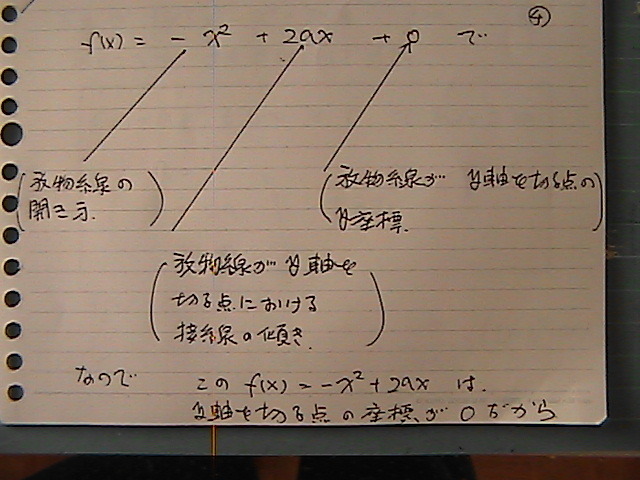 ④
f(x) = - x² + 2ax + 0 で
(放物線の
開き方.)
(放物線が y軸を切る点の
y座標.)
(放物線が y軸を
切る点における
接線の傾き.)
なので この f(x) = -x² + 2ax は.
y軸を切る点の座標が 0 だから